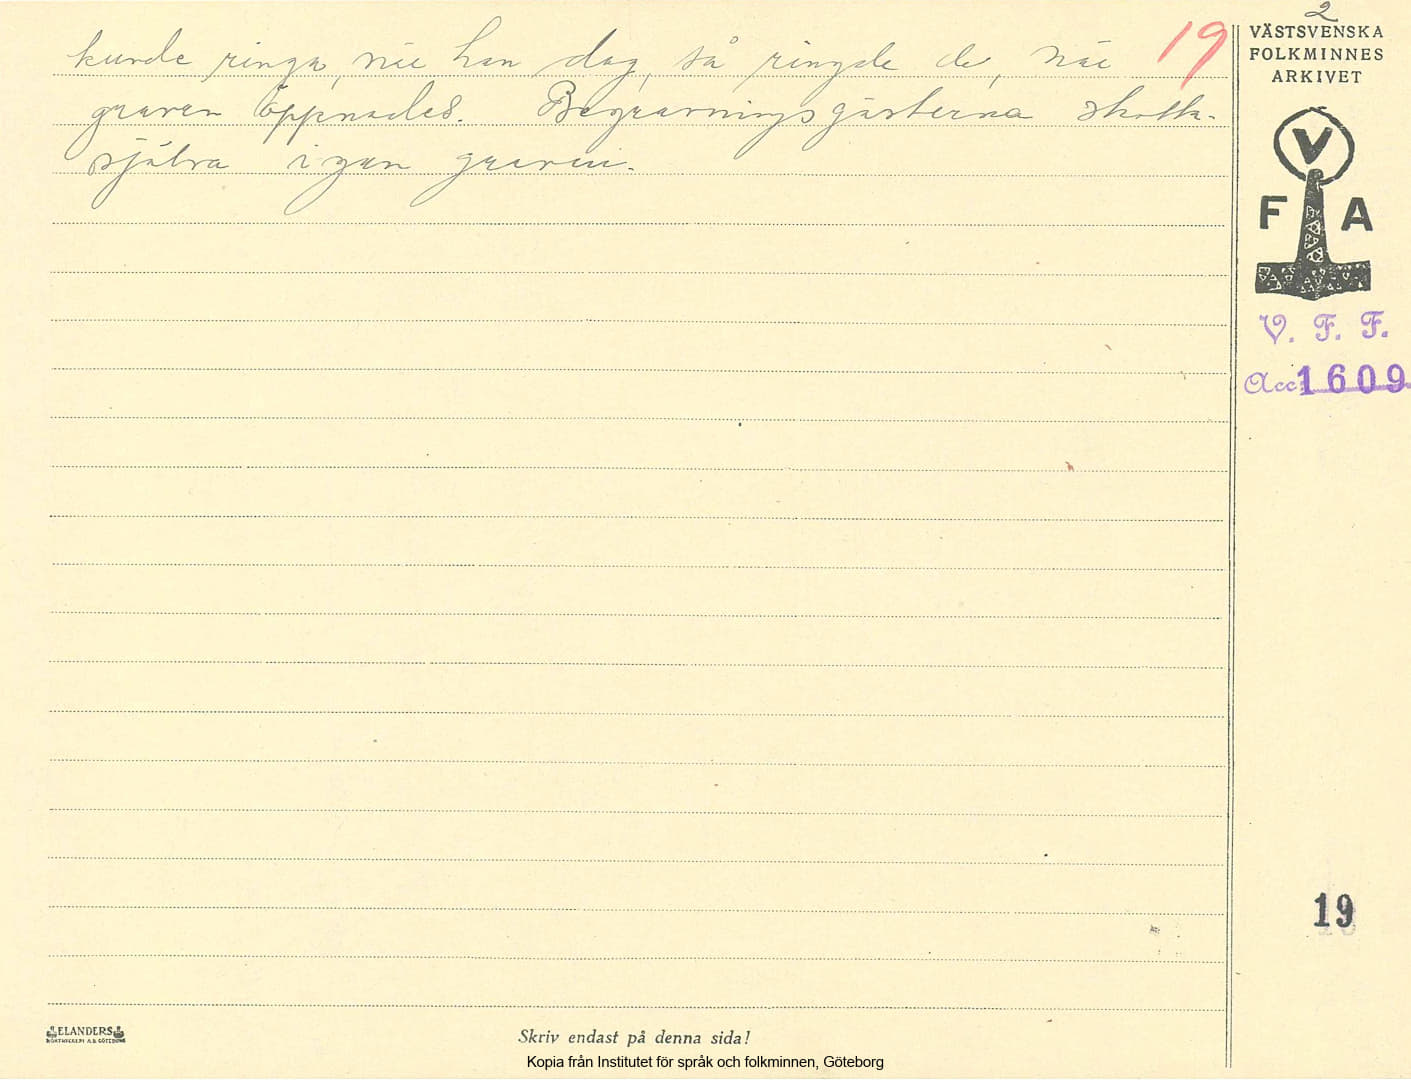 2
19
kunde ringa, när han dog, så ringde de, när
graven öppnades. Begravningsgästerna skotta-
själva igen graven.
VÄSTSVENSKA
FOLKMINNES
ARKIVET
V
F A
V. F. F.
Acc: 1609
19
ELANDERS
Skriv endast på denna sida!
Kopia från Institutet för språk och folkminnen, Göteborg